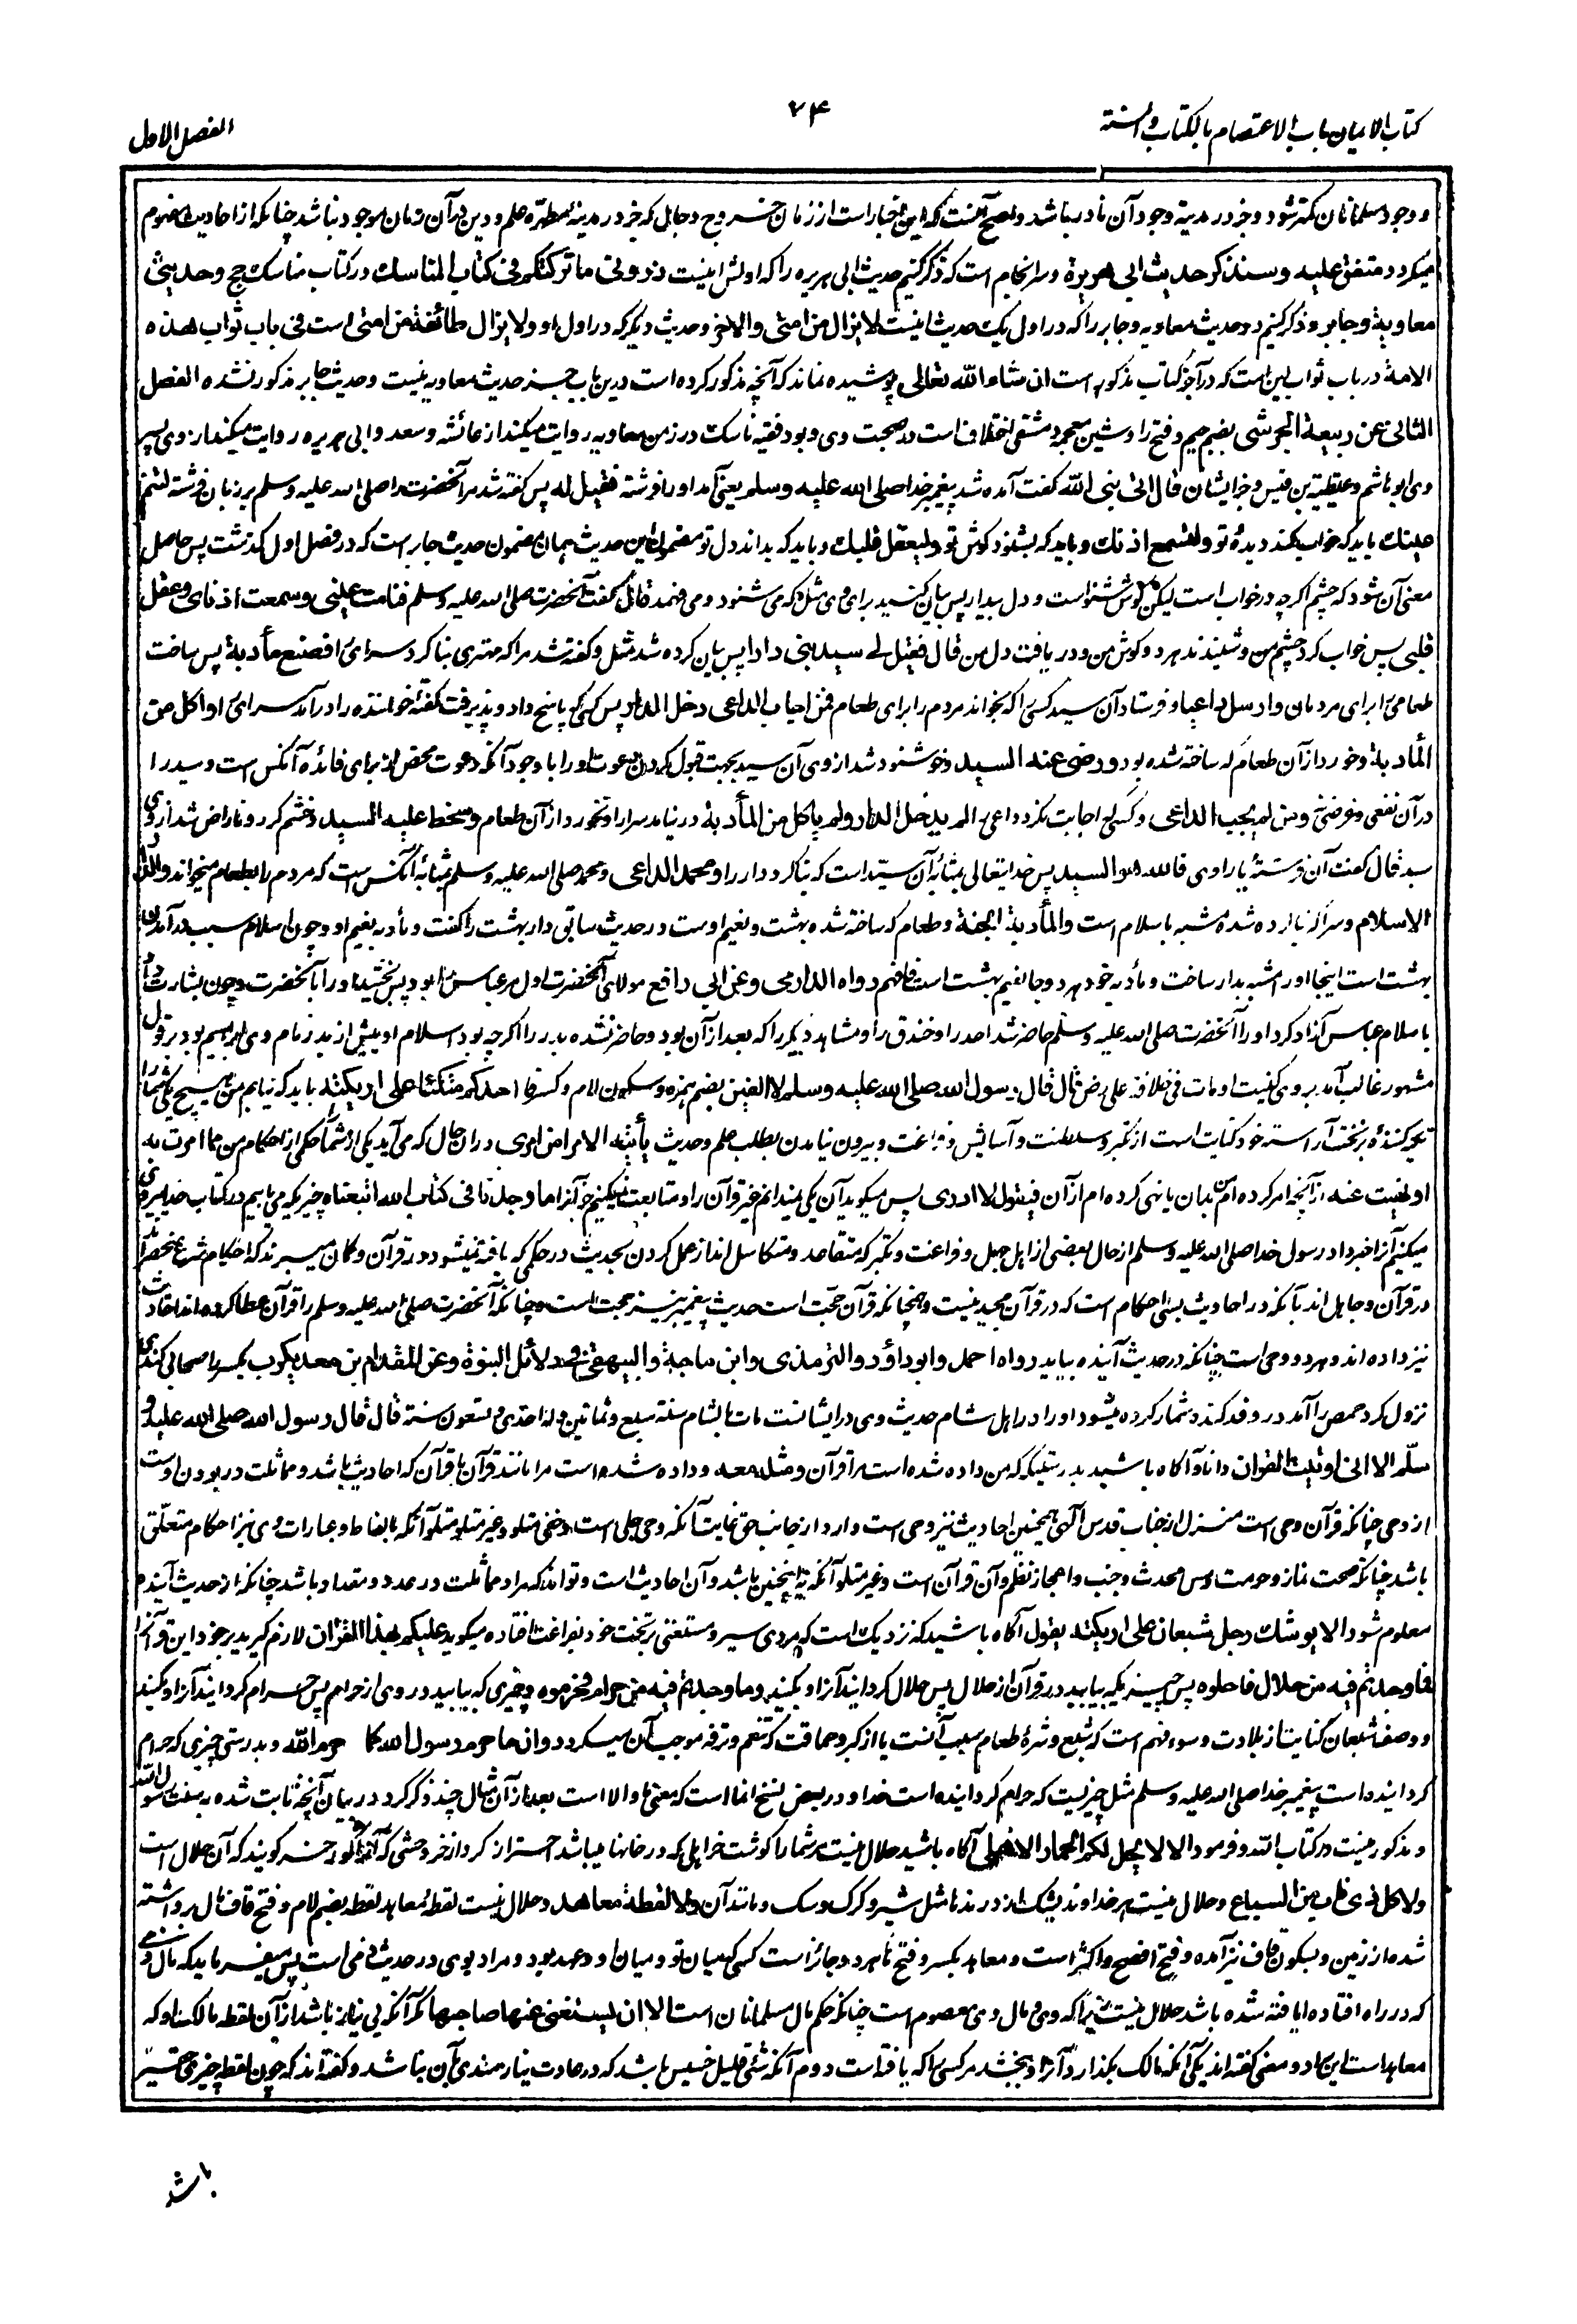 كتاب الايمان باب الاعتصام بالكتاب والسنة
۷۴
الفصل الاول
و وجود مسلمانان کمتر شود و جز در مدینه وجود آن نادر باشد و اصح آنست که این اخبار است از زمان خروج دجال که جز در مدینه مطهره علم و دین در آن زمان موجود نباشد چنانکه از احادیث مفهوم
میگردد متفق علیه وسنذکر حدیث ابی هریرة و سرانجام است که ذکر کنیم حدیث ابی هریره را که اولش اینست ذرونی ما ترکتکم فی کتاب المناسك در کتاب مناسک حج وحدیثی
معاویة وجابر و ذکر کنیم دو حدیث معاویه و جابر را که در اول یک حدیث اینست لا یزال من امتی والاخر و حدیث دیگر که در اول او ولا یزال طائفة من امتی است فی باب ثواب هذه
الامة در باب ثواب این است که در آخر کتاب مذکور است ان شاء الله تعالی پوشیده نماند که آنچه مذکور کرده است درین باب جز حدیث معاویه نیست و حدیث جابر مذکور نشده الفصل
الثانی عن ربیعة الجرشی بضم جیم و فتح را و شین معجمه دمشقی اختلاف است در صحبت وی و بود فقیه ناسک در زمن معاویه روایت میکند از عائشه و سعد و ابی هریره روایت میکند از وی پسر
وی ابو هاشم و عطیة بن قیس و جز ایشان قال اتی نبی الله گفت آمده شد پیغمبر خدا صلی الله علیه وسلم یعنی آمد او را فرشته فقیل له پس گفته شد مر آنحضرت را صلی الله علیه وسلم بر زبان فرشته لتنم
عینك باید که خواب بکند دیدهٔ تو ولتسمع اذنك و باید که بشنود گوش تو ولیعقل قلبك و باید که بداند دل تو مضمون این حدیث همان مضمون حدیث جابر است که در فصل اول گذشت پس حاصل
معنی آن شود که چشم اگرچه در خواب است لیکن گوش شنواست و دل بیدار پس بیان کنید برای وی مثل که می شنود و می فهمد قال گفت آنحضرت صلی الله علیه وسلم فنامت عینی وسمعت اذنای وعقل
قلبی پس خواب کرد چشم من و شنیدند هر دو گوش من و دریافت دل من قال فقیل لی سید بنی دارا پس بیان کرده شد مثل و گفته شد مرا که مهتری بنا کرد سرائی را فصنع مأدبة پس ساخت
طعامی را برای مردمان وارسل داعیا و فرستاد آن سید کسی را که بخواند مردم را برای طعام فمن اجاب الداعی دخل الدار پس کسی که پاسخ داد و پذیرفت گفتهٔ خواننده را درآمد سرای او را واکل من
المأدبة وخورد از آن طعام که ساخته شده بود ورضی عنه السید وخوشنود شد از وی آن سید بجهت قبول کردن دعوت او را با وجود آنکه دعوت محض از برای فائدهٔ آنکس است و سید را
در آن نفعی و غرضی نی ومن لم یجب الداعی و کسی که اجابت نکرد داعی را لم یدخل الدار ولم یاکل من المأدبة درنیامد سرا را و نخورد از آن طعام وسخط علیه السید وخشم کرد و ناراض شد از وی
سید قال گفت آن فرستهٔ یا راوی فالله هو السید پس خدایتعالی بمثابهٔ آن سید است که بنا کرد دار را ومحمد الداعی و محمد صلی الله علیه وسلم بمثابهٔ آنکس است که مردم را بطعام میخواند والدار
الاسلام و سرا که بنا کرده شده مشبه باسلام است والمأدبة الجنة و طعام که ساخته شده بهشت و نعیم اوست و در حدیث سابق دار بهشت را گفت و مأدبه نعیم او و چون اسلام سبب درآمدن
بهشت است اینجا او را مشبه بدار ساخت و مأدبه خود هر دو جا نعیم بهشت است فافهم رواه الدارمی وعن ابی رافع مولای آنحضرت اول مر عباس را بود پس بخشید او را بآنحضرت و چون بشارت داد
باسلام عباس آزاد کرد او را آنحضرت صلی الله علیه وسلم حاضر شد احد را و خندق را و مشاهد دیگر را که بعد از آن بود و حاضر نشده بدر را اگرچه بود اسلام او پیش از بدر نام وی ابراهیم بود بر قول
مشهور غالب آمد بر وی کنیت او مات فی خلافة علی رض قال قال رسول الله صلی الله علیه وسلم لا الفین بضم همزه وسکون لام و کسر فا احدکم متکئا علی اریکته باید که نیابم من هیچ یکی شما را
تکیه کننده بر تخت آراسته خود کنایت است از تکبر و سلطنت و آسایش و فراغت و بیرون نیامدن بطلب علم و حدیث یأتیه الامر من امری در آن حال که می آید یکی از شما را حکمی از احکام من مما امرت به
او نهیت عنه از آنچه امر کرده ام من بدان یا نهی کرده ام از آن فیقول لا ادری پس میگوید آن یکی نمیدانم غیر قرآن را و متابعت نمیکنیم جز آنرا ما وجدنا فی کتاب الله اتبعناه چیزیکه می یابیم در کتاب خدا پیروی
میکنیم آنرا خبر داد رسول خدا صلی الله علیه وسلم از حال بعضی از اهل جهل و فراغت و تکبر که متقاعد و متکاسل اند از عمل کردن بحدیث در حکمی که یافته نمیشود در قرآن و گمان میبرند که احکام شرع منحصر اند
در قرآن و جاهل اند بآنکه در احادیث بسی احکام است که در قرآن مجید نیست و همچنانکه قرآن حجت است حدیث پیغمبر نیز حجت است و چنانکه آنحضرت صلی الله علیه وسلم را قرآن عطا کرده اند احادیث
نیز داده اند و هر دو وحی است چنانکه در حدیث آینده بیاید رواه احمد وابو داؤد والترمذی وابن ماجة والبیهقی فی دلائل النبوة وعن المقدام بن معدیکرب بکسر را صحابی کندی
نزول کرد حمص را آمد در وفد کنده شمار کرده میشود او را در اهل شام حدیث وی در ایشانست مات بالشام سنة سبع وثمانین وله احدی وتسعون سنة قال قال رسول الله صلی الله علیه و
سلم الا انی اوتیت القران دانا و آگاه باشید بدرستیکه من داده شده است مرا قرآن ومثله معه و داده شده است مرا مانند قرآن با قرآن که احادیث باشد و مماثلت در بودن اوست
از وحی چنانکه قرآن وحی است منزل از جناب قدس الٰهی همچنین احادیث نیز وحی است و وارد از جانب حق غایت آنکه وحی جلی است و خفی متلو و غیر متلو متلو آنکه بالفاظ و عبارات وی نیز احکام متعلق
باشد چنانکه صحت نماز و حرمت مس محدث و جنب و اعجاز نظم و آن قرآن است و غیر متلو آنکه نه اینچنین باشد و آن احادیث است و تواند که مراد مماثلت در عدد و مقدار باشد چنانکه از حدیث آینده
معلوم شود الا یوشك رجل شبعان علی اریکته یقول آگاه باشید که نزدیک است که مردی سیر و مستغنی بر تخت خود بفراغت افتاده میگوید علیکم بهذا القران لازم گیرید بر خود این قرآن را
فما وجدتم فیه من حلال فاحلوه پس چیزیکه بیابید در قرآن از حلال پس حلال گردانید آنرا و بکنید وما وجدتم فیه من حرام فحرموه و چیزی که بیابید در وی از حرام پس حرام گردانید آنرا و نکنید
و وصف شبعان کنایت از بلادت و سوء فهم است که شبع و شره طعام سبب آنست یا از کبر و حماقت که تنعم و ترفه موجب آن میگردد وان ما حرم رسول الله کما حرم الله و بدرستی چیزی که حرام
گردانیده است پیغمبر خدا صلی الله علیه وسلم مثل چیزیست که حرام گردانیده است خدا و در بعض نسخ انما است که معنی ما والا است بعد از آن مثال چند ذکر کرد در بیان آنچه ثابت شده بسنت رسول الله
و مذکور نیست در کتاب الله و فرمود الا لا یحل لکم الحمار الاهلی آگاه باشید حلال نیست مر شما را گوشت خر اهلی که در خانها میباشد احتراز کرد از خر وحشی که آنرا گورخر گویند که آن حلال است
ولا کل ذی ناب من السباع و حلال نیست هر خداوند نیشک از درندها مثل شیر و گرگ و سگ و مانند آن ولا لقطة معاهد و حلال نیست لقطهٔ معاهد لقطه بضم لام و فتح قاف مال برداشته
شده از زمین و بسکون قاف نیز آمده و فتح افصح و اکثر است و معاهد بکسر و فتح ها هر دو جائز است کسی که میان تو و میان او عهد بود و مراد بوی در حدیث ذمی است پس میفرماید که مال ذمی
که در راه افتاده یافته شده باشد حلال نیست زیرا که وی و مال وی معصوم است چنانکه حکم مال مسلمانان است الا ان یستغنی عنها صاحبها مگر آنکه بی نیاز باشد از آن لقطه مالک او که
معاهد است این را دو معنی گفته اند یکی آنکه مالک بگذارد آنرا و بخشد مر کسی را که یافته است دوم آنکه شئی قلیل خسیس باشد که در عادت نیازمندی بآن نباشد و گفته اند که چون لقطه چیزی حقیر
باشد